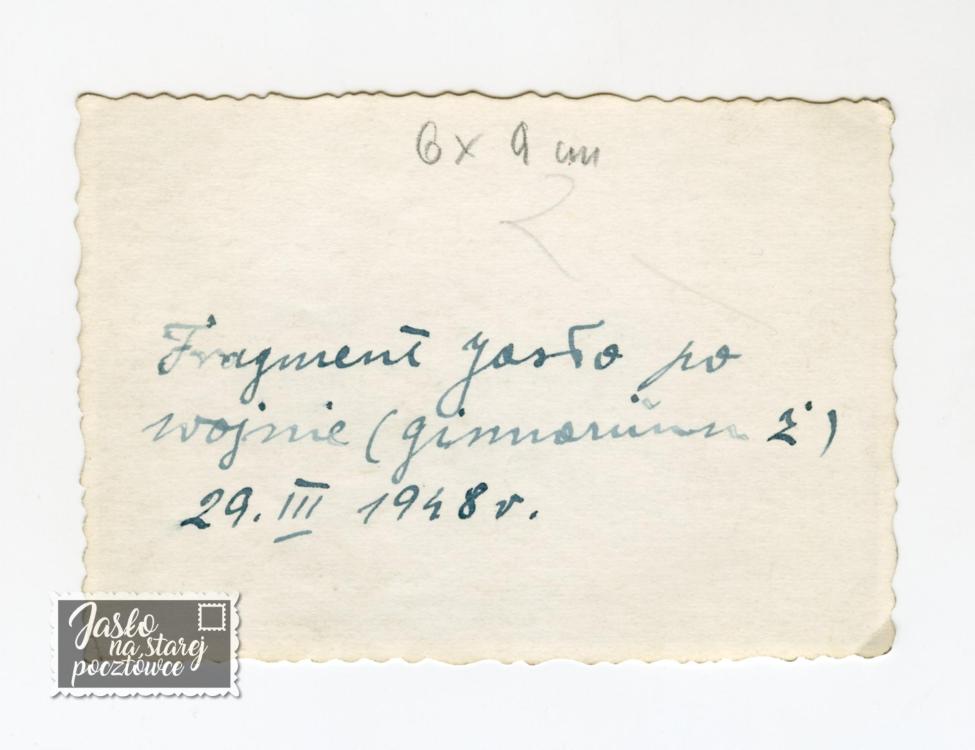 6 x 9 cm
Fragment Jasło po
wojnie (gimnazium Ż)
29. III 1948 r.
Jasło
na starej
pocztówce